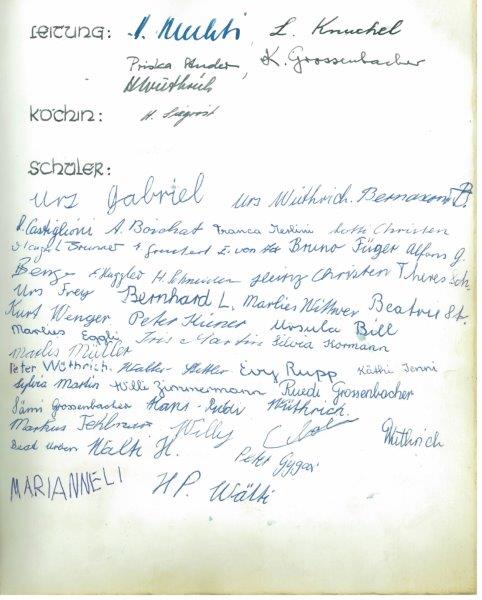 LEITUNG: L. Knuchel
Priska K. Grossenbacher
H. Wüthrich
KÖCHIN: H. Siegrist
SCHÜLER:
Urs Gabriel Urs Wüthrich. B.
R. Castiglioni A. Borchat Franca Merlini Ruth Christen
Brunner E. von Bruno Füger Alfons G.
Benz F. Kuggler H. Schneider Heinz Christen Theres Sch.
Urs Frey Bernhard L. Marlies Wittwer Beatrice St.
Kurt Wenger Peter Kuner Ursula Bill
Marlies Eggli Iris Martin Silvia Hormann
Marlis Müller
Peter Wüthrich. Walter Evy Rupp Käthi Jenni
Sylvia Martin Willi Zimmermann Ruedi Grossenbacher
Sämi Grossenbacher Hans-Peter Wüthrich.
Markus Willy Wüthrich
Beat Urben Walti H. Peter Gygax
MARIANNELI H P. Wälti